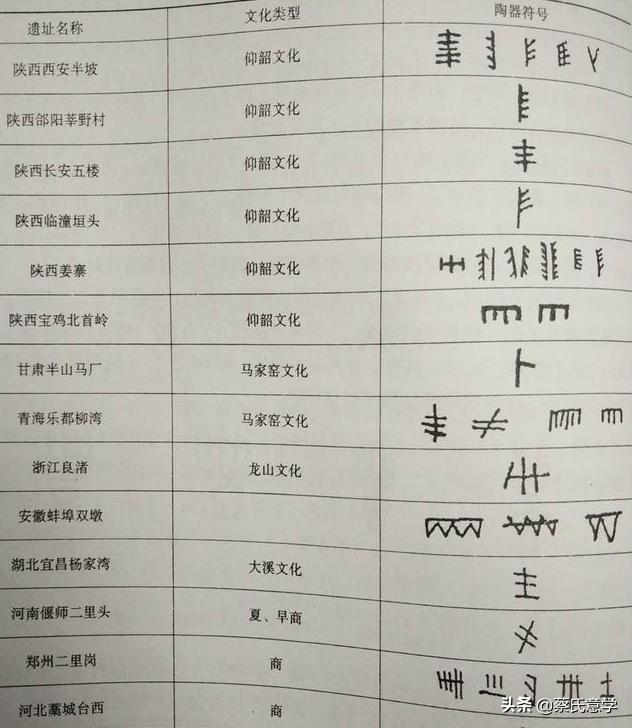 遗址名称 文化类型 陶器符号
陕西西安半坡 仰韶文化
陕西郃阳莘野村 仰韶文化
陕西长安五楼 仰韶文化
陕西临潼垣头 仰韶文化
陕西姜寨 仰韶文化
陕西宝鸡北首岭 仰韶文化
甘肃半山马厂 马家窑文化
青海乐都柳湾 马家窑文化
浙江良渚 龙山文化
安徽蚌埠双墩
湖北宜昌杨家湾 大溪文化
河南偃师二里头 夏、早商
郑州二里岗 商
河北藁城台西 商
头条 @蔡氏意学